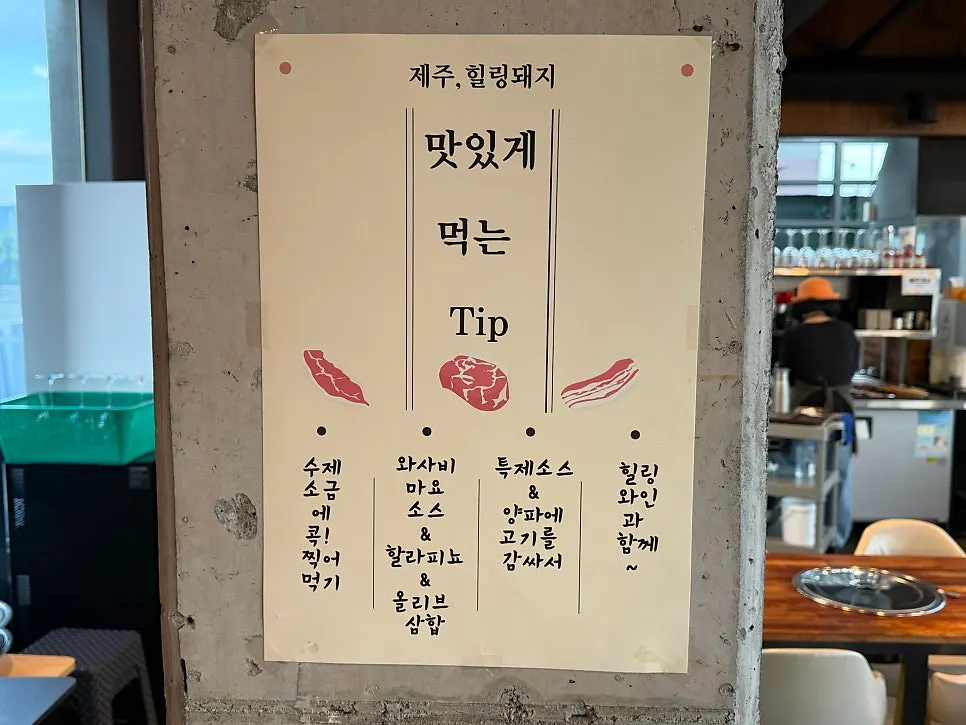 제주, 힐링돼지
맛있게
먹는
Tip
수제
소금
에
콕!
찍어
먹기
와사비
마요
소스
&
할라피뇨
&
올리브
삼합
특제소스
&
양파에
고기를
감싸서
힐링
와인
과
함께
~